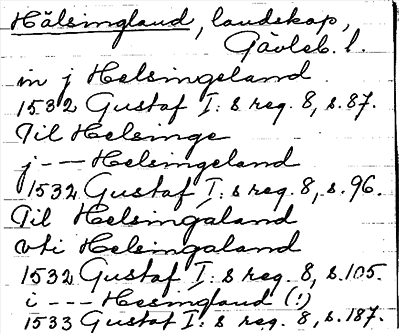 Hälsingland, landskap,
Gävleb. l.
in j Helsingeland
1532 Gustaf I:s reg. 8, s. 87.
Til Helsinge
j --- Helsingeland
1532 Gustaf I:s reg. 8, s. 96.
Til Helsingaland
vti Helsingaland
1532 Gustaf I:s reg. 8, s. 105.
i --- Hesingland (!)
1533 Gustaf I:s reg. 8, s. 187.